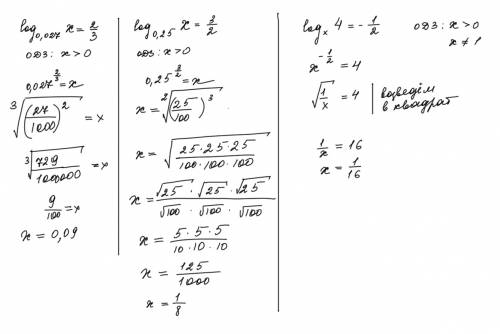 log₀,₀₂₇ x = 2/3
одз: x > 0
0,027^(2/3) = x
∛((27/1000)²) = x
∛(729/1000000) = x
9/100 = x
x = 0,09
log₀,₂₅ x = 3/2
одз: x > 0
0,25^(3/2) = x
x = ²√((25/100)³)
x = √((25·25·25)/(100·100·100))
x = (√25 · √25 · √25)/(√100 · √100 · √100)
x = (5·5·5)/(10·10·10)
x = 125/1000
x = 1/8
logₓ 4 = -1/2 одз: x > 0
x ≠ 1
x^(-1/2) = 4
√(1/x) = 4 | возведім
в квадрат
1/x = 16
x = 1/16